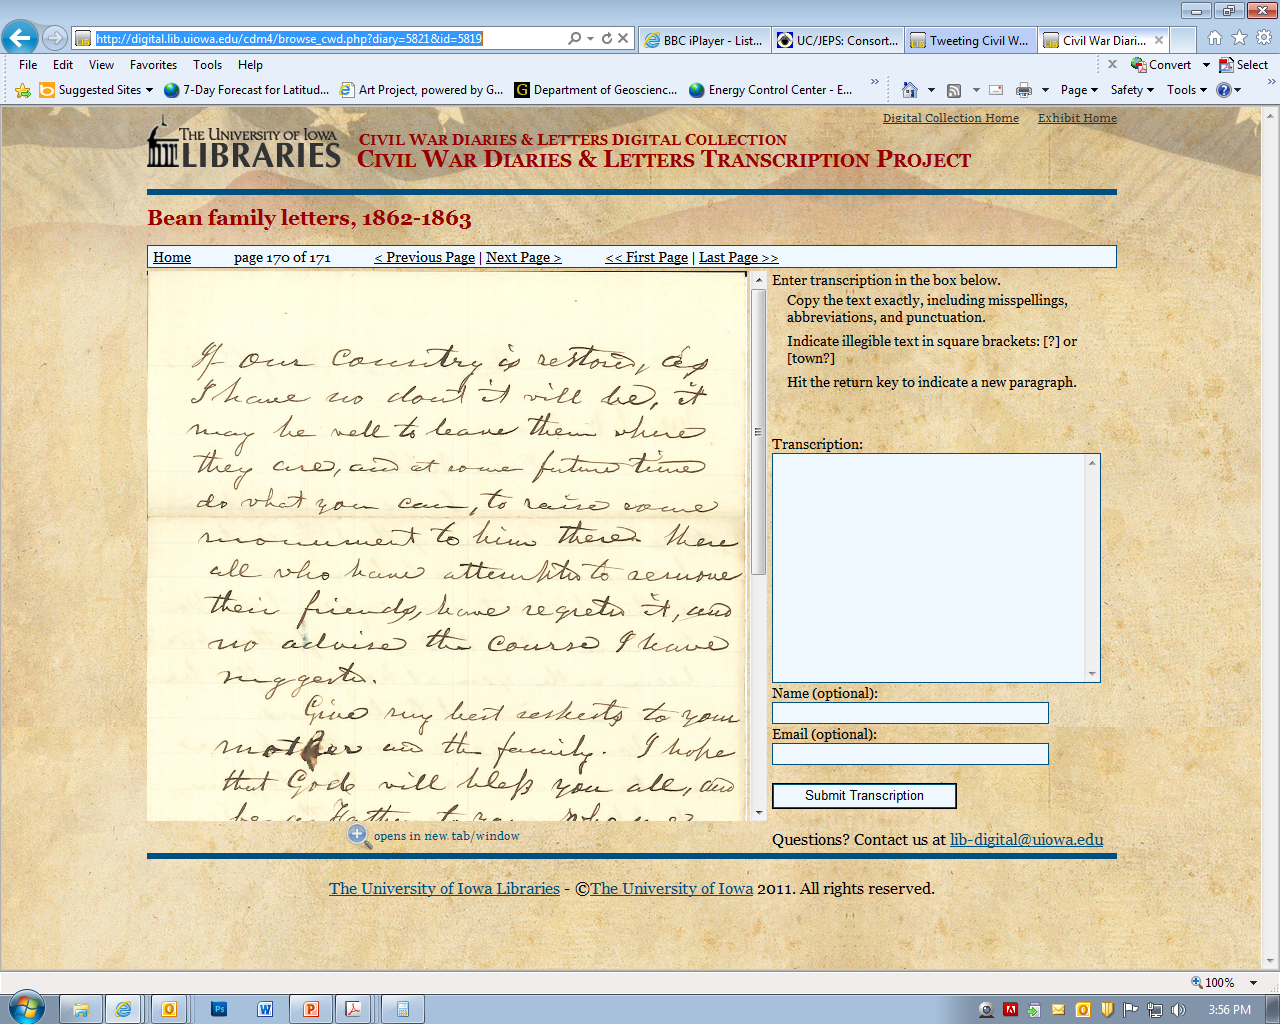 http://digital.lib.uiowa.edu/cdm4/browse_cwd.php?diary=5821&id=5819
BBC iPlayer - List...
UC/JEPS: Consort...
Tweeting Civil W...
Civil War Diari...
File Edit View Favorites Tools Help
Convert Select
Suggested Sites 7-Day Forecast for Latitud... Art Project, powered by G... Department of Geoscienc... Energy Control Center - E... Page Safety Tools
Digital Collection Home Exhibit Home
THE UNIVERSITY OF IOWA
LIBRARIES
CIVIL WAR DIARIES & LETTERS DIGITAL COLLECTION
CIVIL WAR DIARIES & LETTERS TRANSCRIPTION PROJECT
Bean family letters, 1862-1863
Home page 170 of 171 < Previous Page | Next Page > << First Page | Last Page >>
If our country is restord, as
I have no dout it will be, it
may be well to leave them where
they are, and at some future time
do what you can, to raise some
monument to him there. Those
all who have attempted to remove
their friends, have regreted it, and
no advise the course I have
suggested.
Give my best respects to your
mother and the family. I hope
that God will bless you all, and
be a Father to you
Enter transcription in the box below.
Copy the text exactly, including misspellings,
abbreviations, and punctuation.
Indicate illegible text in square brackets: [?] or
[town?]
Hit the return key to indicate a new paragraph.
Transcription:
Name (optional):
Email (optional):
Submit Transcription
opens in new tab/window
Questions? Contact us at lib-digital@uiowa.edu
The University of Iowa Libraries - ©The University of Iowa 2011. All rights reserved.
100%
3:56 PM